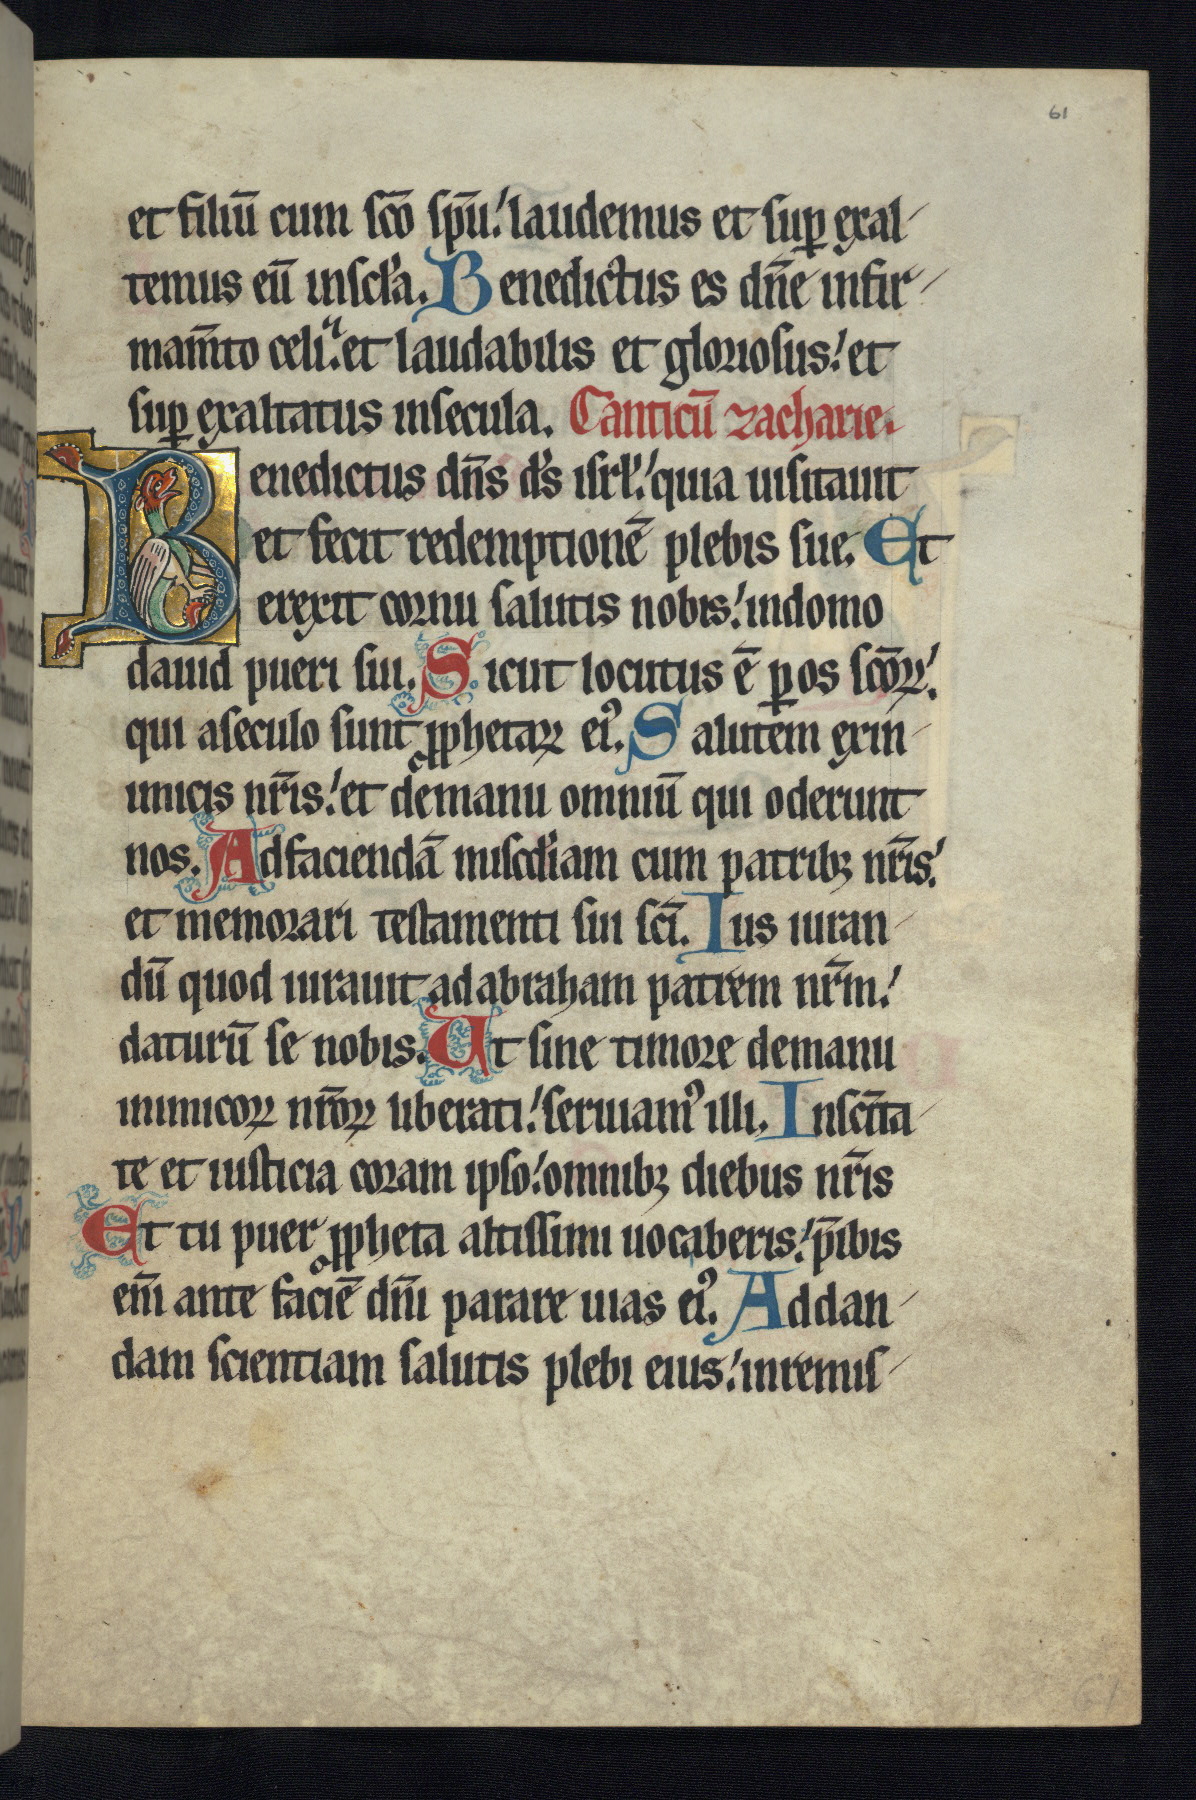 61
et filiū cum sc̄o sp̄u! laudemus et suꝑ exal-
temus eū inscl̄a. Benedictus es dn̄e infir-
mam̄to celi. et laudabilis et gloriosus! et
suꝑ exaltatus insecula. Canticū zacharie.
Benedictus dn̄s d̄s isrl̄! quia uisitauit
et fecit redemptionē plebis sue. Et
erexit cornu salutis nobis! indomo
dauid pueri sui. Sicut locutus ē ꝑ os sc̄oꝝ!
qui aseculo sunt ꝓphetaꝝ eiꝰ. Salutem exin-
imicis nr̄is! et demanu omniū qui oderunt
nos. Adfaciendā misc̄diam cum patribꝫ nr̄is!
et memorari testamenti sui sc̄i. Ius iuran-
dū quod iurauit adabraham patrem nr̄m!
daturū se nobis. Ut sine timore demanu
inimicoꝝ nr̄oꝝ liberati! seruiamꝰ illi. Insc̄ita-
te et iusticia coram ipso! omnibꝫ diebus nr̄is
Et tu puer ꝓpheta altissimi uocaberis! p̄ibis
em̄ ante faciē dn̄i parare uias eiꝰ. Addan-
dam scientiam salutis plebi eius! inremis-
61